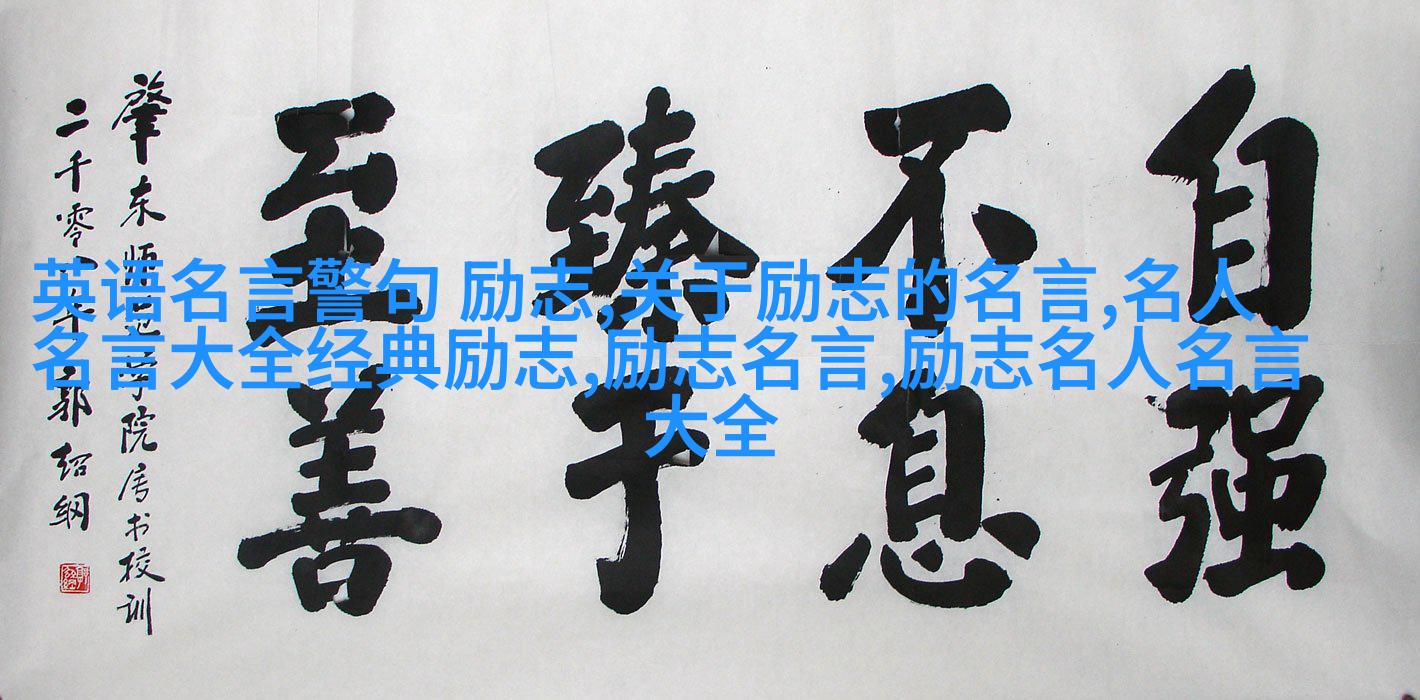 自强
不息
臻于
至善
肇东师范学院属书校训
二千零年郭绍纲
英语名言警句 励志,关于励志的名言,名人
名言大全经典励志,励志名言,励志名人名言
大全